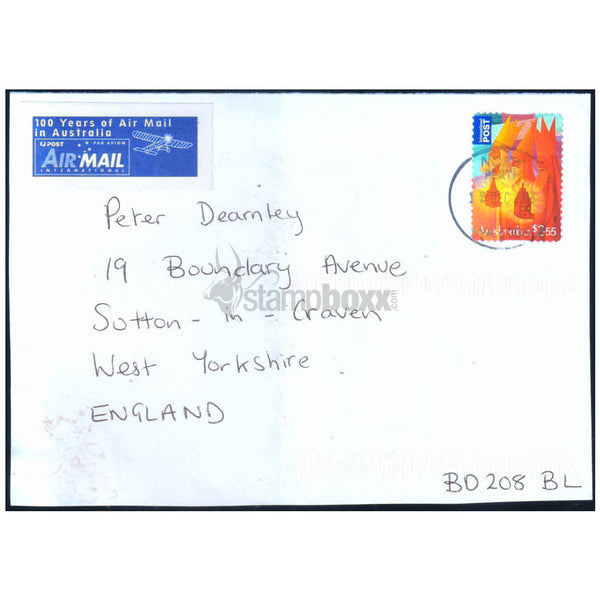 100 Years of Air Mail
in Australia
POST PAR AVION
AIR MAIL
INTERNATIONAL
International
POST
Australia $2.55
Peter Dearnley
19 Boundary Avenue
stampboxx.com
Sutton-in-Craven
West Yorkshire
ENGLAND
BD208 BL